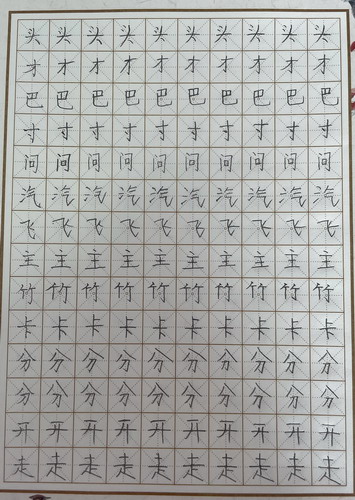 头头头头头头头头头头
才才才才才才才才才才
巴巴巴巴巴巴巴巴巴巴
寸寸寸寸寸寸寸寸寸寸
问问问问问问问问问问
汽汽汽汽汽汽汽汽汽汽
飞飞飞飞飞飞飞飞飞飞
主主主主主主主主主主
竹竹竹竹竹竹竹竹竹竹
卡卡卡卡卡卡卡卡卡卡
分分分分分分分分分分
分分分分分分分分分分
开开开开开开开开开开
走走走走走走走走走走